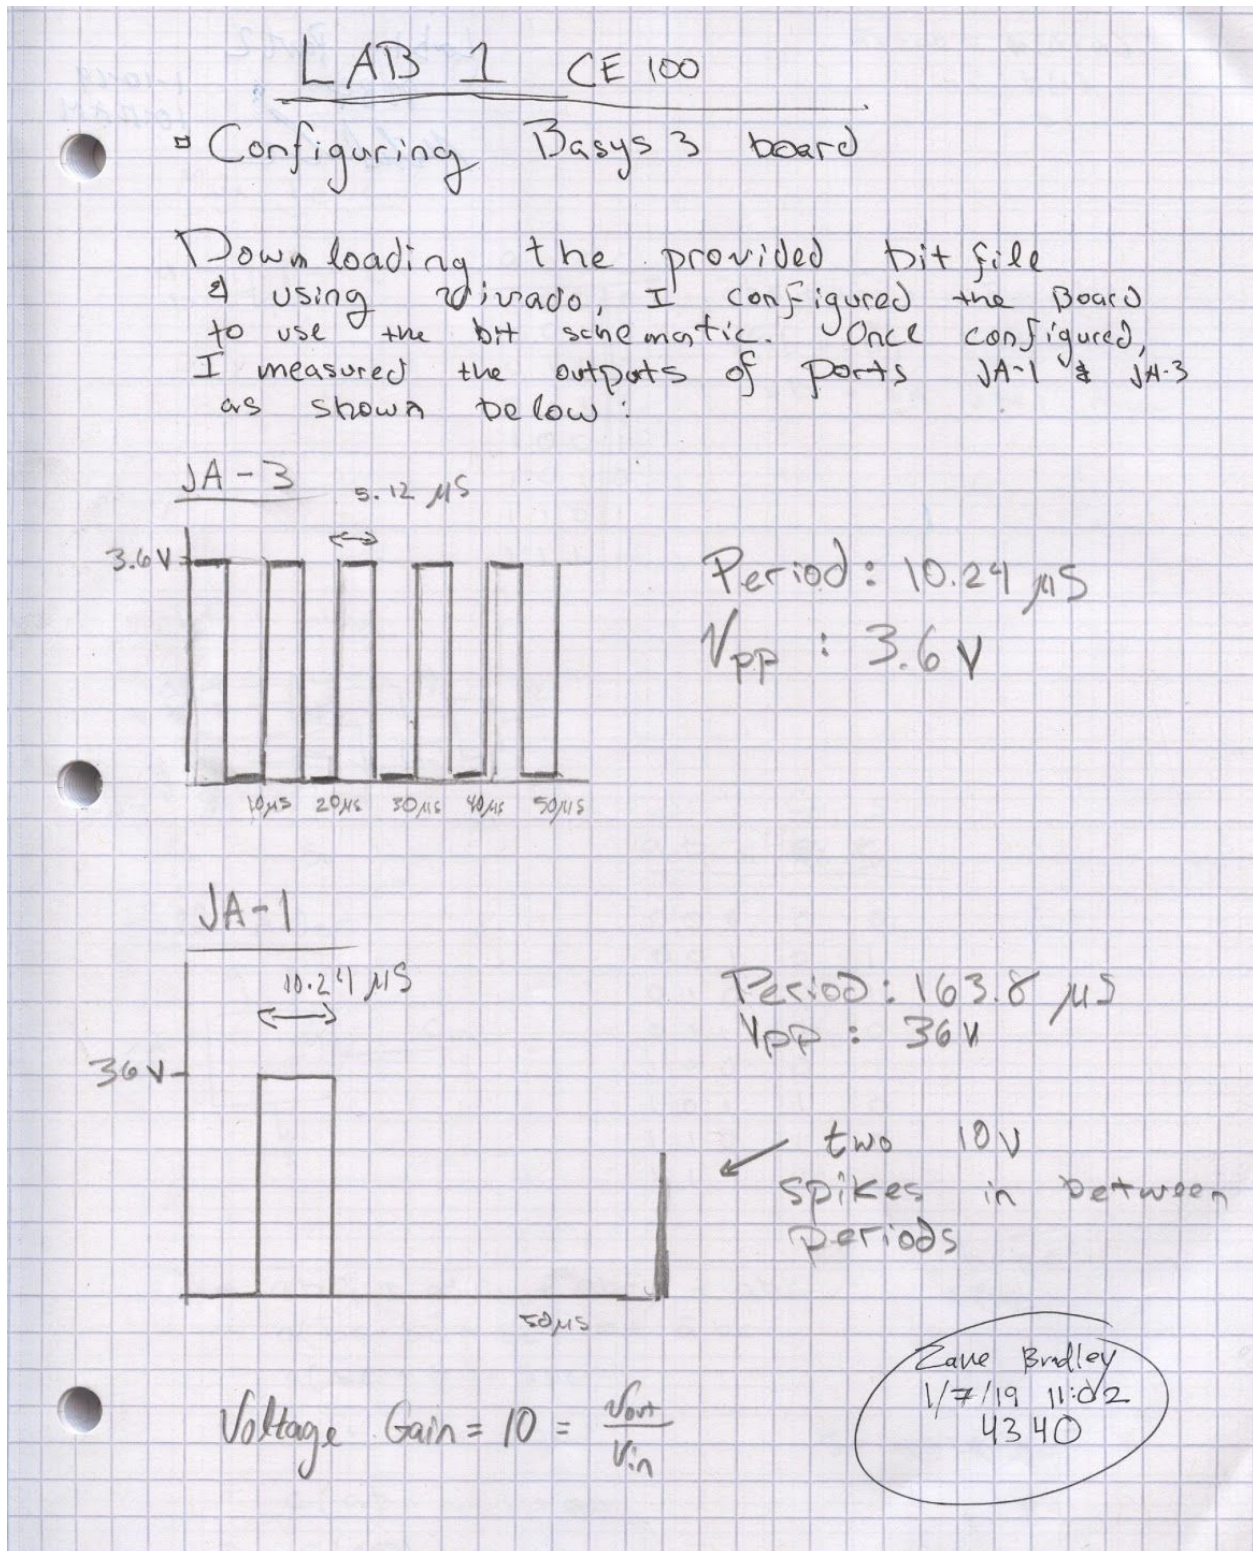 LAB 1 CE 100
Configuring Basys 3 board
Downloading the provided bit file
& using Vivado, I configured the Board
to use the bit schematic. Once configured,
I measured the outputs of ports JA-1 & JA-3
as shown below:
JA-3
5.12 μS
3.6V
10μS 20μS 30μS 40μS 50μS
Period: 10.24 μS
Vpp : 3.6 V
JA-1
10.24 μS
36V
50μS
Period: 163.8 μS
Vpp : 36V
two 10V
spikes in between
periods
Voltage Gain = 10 = Vout/Vin
Zane Bradley
1/7/19 11:02
4340